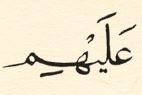 عَلَيْهِم